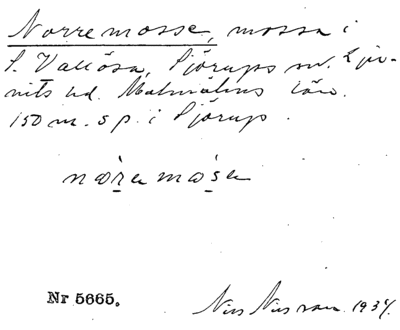 Norremosse, mossa i
S. Vallösa, Sjörups sn. Lju-
nits hd. Malmöhus län.
150 m. s p. i Sjörup.
Nr 5665.
Nils Nilsson. 1934.